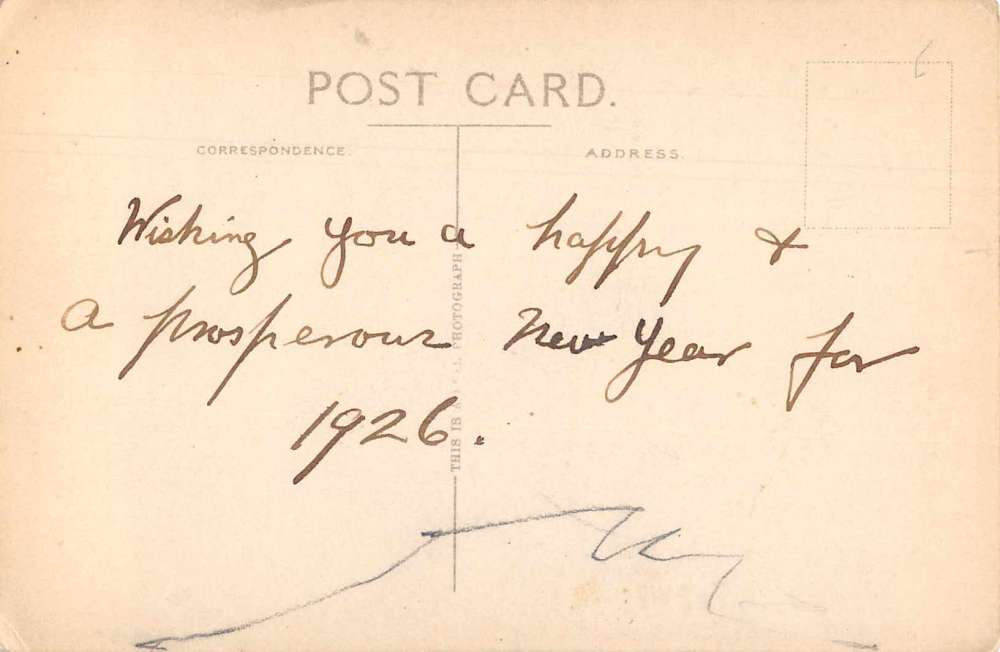 POST CARD.
CORRESPONDENCE.
ADDRESS.
Wishing you a happy &
a prosperous New Year for
1926.
THIS IS A REAL PHOTOGRAPH